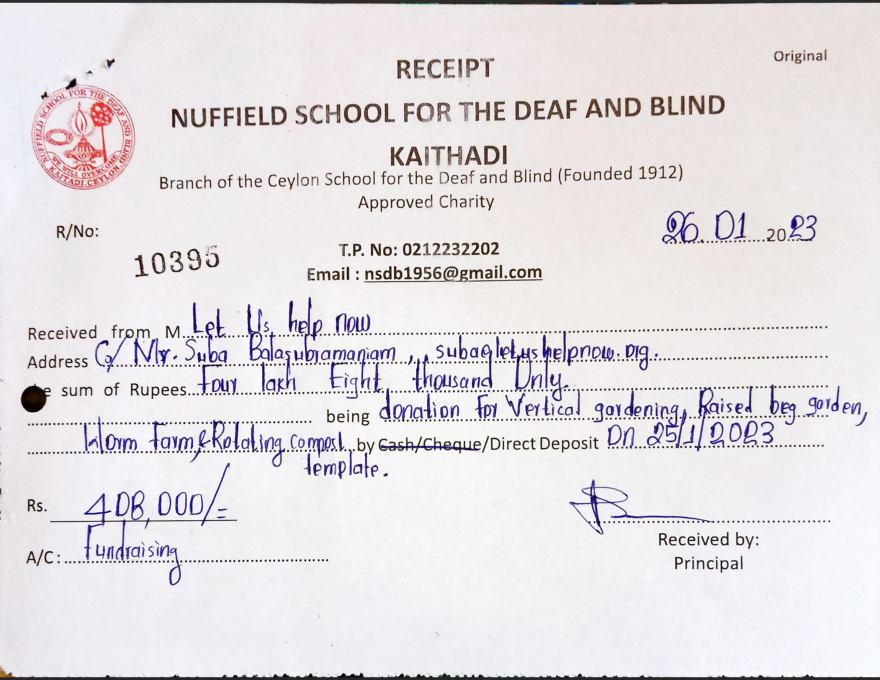 Original
RECEIPT
NUFFIELD SCHOOL FOR THE DEAF AND BLIND
KAITHADI
Branch of the Ceylon School for the Deaf and Blind (Founded 1912)
Approved Charity
NUFFIELD SCHOOL FOR THE DEAF AND BLIND
WE WILL OVERCOME
KAITADI, CEYLON
R/No:
10395
26.01 2023
T.P. No: 0212232202
Email : nsdb1956@gmail.com
Received from M Let Us help now
Address C/ Mr. Suba Balasubramaniam, subagletushelpnow.org.
sum of Rupees Four lakh Eight thousand Only
being donation for Vertical gardening, Raised beg garden,
Worm Farm, & Rotating compost by Cash/Cheque/Direct Deposit On 25/1/2023
template.
Rs. 408,000/=
A/C: Fundraising
Received by:
Principal